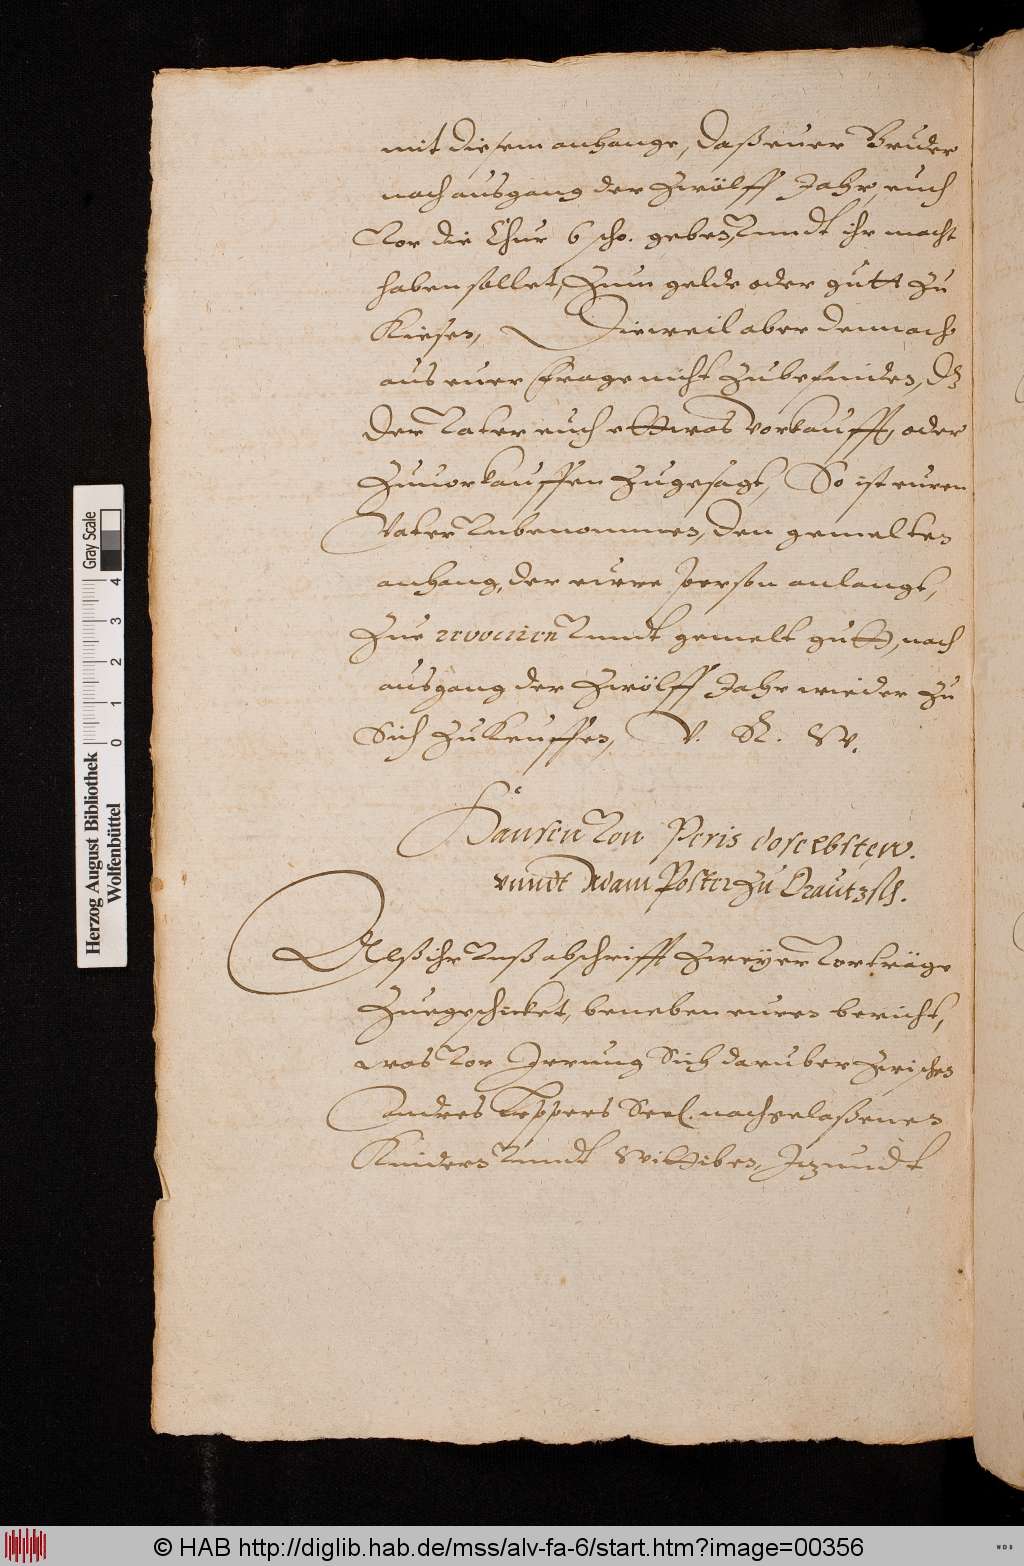 mit diesem anhange, daß euer Bruder
nach ausgang der Zwölff Jahr, euch
vor die Chur 6 scho. geben, vnndt ihr macht
haben sollet, Zum gelde oder gutt zu
Kiesen, Dieweil aber dennach
aus euer frage nicht Zubefinden, dz
der Vater euch ettwas vorkaufft, oder
Zuuorkauffen Zugesagt, So ist euren
Vater vnbenommen, den gemelten
anhang, der euere person anlangt,
Zue revociren vnndt gemelt gutt, nach
ausgang der Zwölff Jahr wieder zu
Sich Zukeuffen, V. R. W.
Hansen von
vnndt Adam Poster Zu
Alß ihr vnß abschrifft Zweyer vorträge
Zuegeschicket, beneben euren bericht,
was vor Irrung Sich daruber Zwischen
Andres Töppers Seel. nachgelaßenen
Kindern vnndt Wittiben, Itzundt
Gray Scale
0 1 2 3 4
Herzog August Bibliothek
Wolfenbüttel
© HAB http://diglib.hab.de/mss/alv-fa-6/start.htm?image=00356